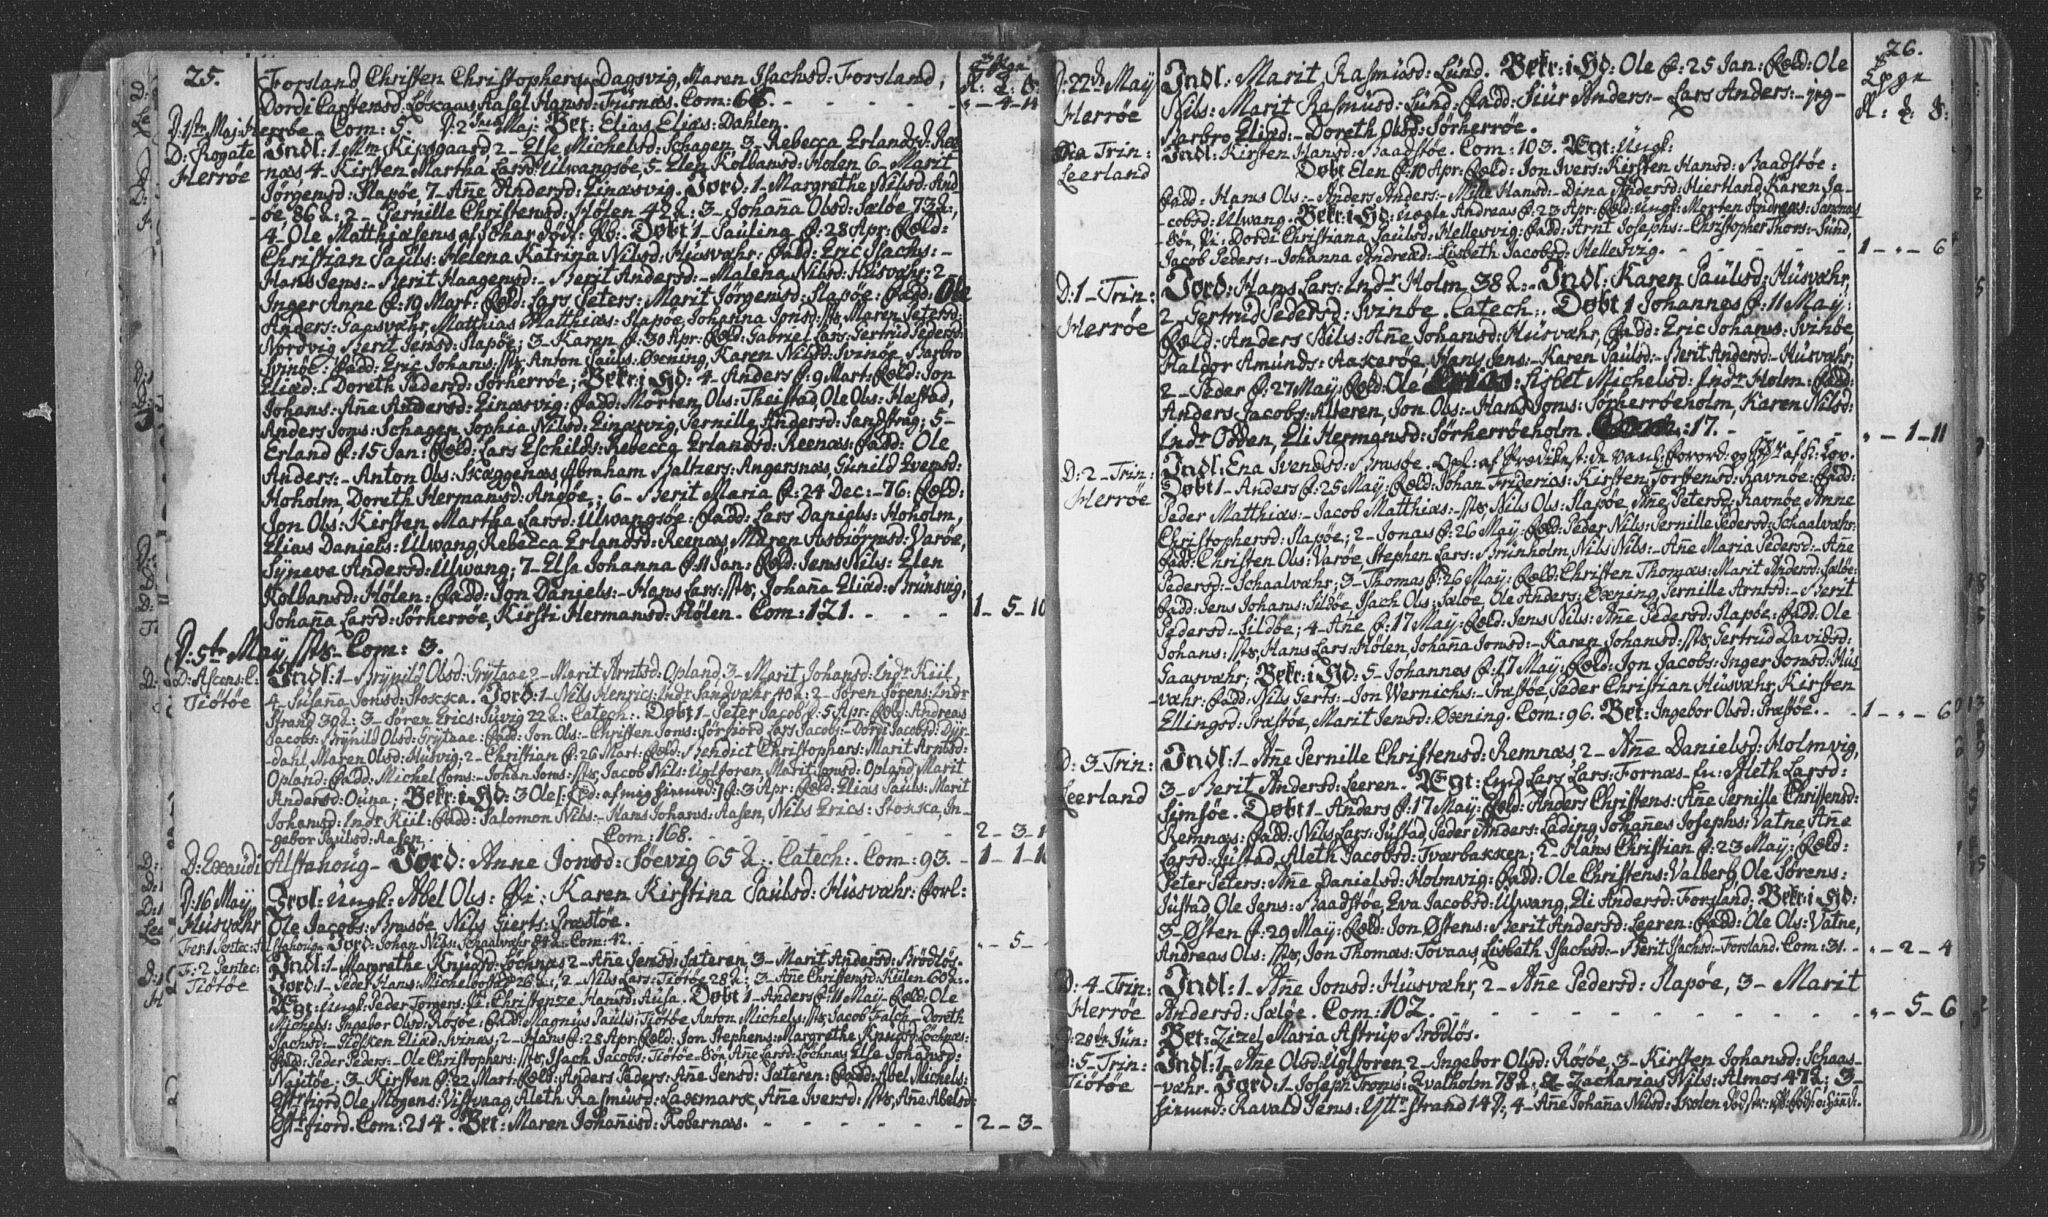 25.
Forsland, Christen Christophers: Dagsvig, Maren Isachsd: Forsland,
Dordi Carstensd: Løkaas Aasel Hansd: Furnæs. Com: 66. - - - „ - 4 - 11
D: 1ste Maj: Herrøe - Com: 5. D: 2 Maj: Bet: Elias Eliæ: Dahlen.
D: Rogate Indl: 1 Mm Kipsgaard, 2 - Else Michelsd: Schagen 3 - Rebecca Erlandsd: Ree
Herrøe næs 4 - Kirsten Martha Larsd: Ulwangsøe, 5 - Elen Kolbansd: Holen 6 - Marit
Jörgensd: Slapøe, 7 - Añe Andersd: Einæsvig. Jord: 1 - Margrethe Nilsd: And-
øe 86 2: 2 - Pernille Christensd: Hølen 42 2: 3 - Johaña Olsd: Sæløe 73 2:,
4 - Ole Matthiæsens af Schar Død: Øb:. Døbt 1 - Pauling f: 28 Apr: Foeld:
Christian Pauls: Helena Katrina Nilsd: Husvæhr: Fadd: Eric Isachs: -
Hans Jens: - Berit Haagensd: - Berit Andersd: - Malena Nilsd: Husvæhr; 2 -
Inger Anne f: 19 Mart: Foeld: Lars Peters: Marit Jørgensd: Slapøe: Fadd: Ole
Anders: Gaasvæhr, Matthias Matthiæ: Slapøe, Johanna Jonsd: sts, Maren Petersd:
Nordvig Berit Jensd: Slapøe; 3 - Karen f: 30 Apr: Foeld: Gabriel Lars: Gertrud Pedersd:
Svinøe: Fadd: Eric Johans: sts, Anton Pauls: Øxning, Karen Nilsd: Svinøe, Barbro
Eliæd: Doreth Pedersd: Sørherrøe; Bekr: i Hd: 4 - Anders f: 9 Mart: Foeld: Jon
Johans: Añe Andersd: Einæsvig: Fadd: Morten Ols: Theistad, Ole Ols: Hæstad,
Anders Jons: Schagen, Sophia Nilsd: Einæsvig, Pernille Andersd: Sandstrag; 5 -
Erland f: 15 Jan: Foeld: Lars Eschilds: Rebecca Erlandsd: Reenæs: Fadd: Ole
Anders: - Anton Ols: Skaggenæs, Abraham Baltzers: Angersnæs, Gunild Evensd:
Hoholm, Doreth Hermansd: Angøe,; 6 - Berit Maria f: 24 Dec: - 76: Foeld:
Jon Ols: Kirsten Martha Larsd: Ulwangsøe: Fadd: Lars Daniels: Hoholm,
Elias Daniels: Ulwang, Rebecca Erlandsd: Reenæs, Maren Asbiörnsd: Varøe,
Syneve Andersd: Ulwang; 7 - Elsa Johanna f: 11 Jan: Foeld: Jens Nils: Elen
Kolbansd: Hølen: Fadd: Jon Daniels: - Hans Lars: sts, Johaña Eliæd: Brunsvig,
Johaña Larsd: Sørherrøe, Kirsti Hermansd: Hølen. Com: 121. - - - 1 - 5 - 10
D: 5te May sts - Com: 3.
D: Ascens: C: Indl: 1 - Brynild Olsd: Grytaae 2 - Marit Arntsd: Opland 3 - Marit Johansd: Indr Kiil,
Tiøtøe 4 - Susaña Jonsd: Stokka. Jord: 1 - Nils Henrics: Indr Sandvæhr 40 2: 2 - Søren Sørens: Indr
Strand 39 2: 3 - Søren Erics: Husvig 22 2:. Catech:. Døbt 1 - Peter Jacob f: 5 Apr: Foeld: Andreas
Jacobs: Brynild Olsd: Grytaae: Fadd: Jon Ols: - Christen Jons: Sørfiord Lars Jacobs: - Dordi Jacobsd: Dyr-
dahl, Maren Olsd: Husvig: 2 - Christian f: 26 Mart: Foeld: Bendict Christophers: Marit Arntsd:
Opland: Fadd: Michel Jons: - Johan Jons: sts, Jacob Nils: Uglforen, Marit Jonsd: Opland, Marit
Andersd: Ouna; Bekr: i Hd: 3 Ole f: 3 Apr: Foeld: Elias Pauls: Marit
Johansd: Indr Kiil: Fadd: Salomon Nils: - Hans Johans: Aasen, Nils Erics: Stokka, In-
gebor Paulsd: Aasen. Com: 168. - - - 2 - 3 - 1
D: Exaudi Alstahoug - Jord: Anne Jonsd: Søevig 65 2:. Catech:. Com: 93. - 1 - 1 - 1
D: 16 May Trol: Ungk: Abel Ols: Pi: Karen Kirstina Paulsd: Husvæhr: Forl:
Husvæhr Ole Jacobs: Brasøe Nils Gierts: Præstøe.
Fer: 1 Pentec: Alstahoug - Jord: Johan Nils: Schaalvæhr 84 2: Com: 42. - - - „ - 5 -
F: 2 Pentec: Indl: 1 - Margrethe Knudsd: Løchnæs 2 - Añe Jensd: Sæteren, 3 - Marit Andersd: Brødløs.
Tiøtøe Jord: 1 - Peder Hans: Michelbostad 26 2:, 2 - Nils Lars: Tiøtøe 28 2:, 3 - Añe Christensd: Kulen 60 2:.
Ægt: Ungk: Peder Torgers: Pi: Christenze Hansd: Husa. Døbt 1 - Anders f: 11 May - Foeld: Ole
Michels: Ingebor Olsd: Rosøe: Fadd: Magnus Pauls: Tiøtøe Anton Michels: sts, Jacob Falch - Doreth
Jachsd: - Eliæd: Svinæs; 2 - Hans f: 28 Apr: Foeld: Jon Stephens: Margrethe Knudsd: Løchnæs:
Fadd: Peder Peders: - Ole Christophers: sts, Isach Jacobs: Tiøtøe - Søn, Añe Larsd: Løchnæs, Else Johansd:
Naustøe, 3 - Kirsten f: 22 Mart: Foeld: Anders Peders: Añe Jensd: Sæteren: Fadd: Abel Michels:
Østrfiord, Ole Mogens: Vistvaag, Aleth Rasmusd: Laxmark, Añe Iversd: sts, Añe Abelsd:
Østrfiord. Com: 214. Bet: Maren Johañisd: Kobernæs. - - - 2 - 3 -
26.
D: 22de May Indl: Marit Rasmusd: Lund. Bekr: i Hd: Ole f: 25 Jan: Foeld: Ole
Herrøe Nils: Marit Rasmusd: Lund: Fadd: Siur Anders: - Lars Anders: -
Barbro Eliæd: - Doreth Olsd: Sørherrøe.
Fea Trin: Indl: Kirsten Hansd: Baadstøe. Com: 103. Ægt: Ungk:
Leerland Døbt Elen f: 10 Apr: Foeld: Jon Ivers: Kirsten Hansd: Baadstøe:
Fadd: Hans Ols: - Anders Anders: - Mille Hansd: - Dina Andersd: Hiertland, Karen Ja-
cobsd: Ulwang. Bekr: i Hd: Uægte Andreas f: 23 Apr: Foeld: Ungk: Morten Andreas: Sannæs
Søn, Pi: Dordi Christiana Paulsd: Hellesvig: Fadd: Arnt Josephs: - Christopher Thors: Sund,
Jacob Peders: - Johanna Andreæd: - Lisbeth Jacobsd: Hellesvig. - - - 1 - „ - 6
D: 1 - Trin: Jord: Hans Lars: Indr Holm 38 2:. Indl: Karen Paulsd: Husvæhr,
Herrøe 2 - Gertrud Pedersd: Svinøe. Catech:. Døbt 1 Johannes f: 11 May:
Foeld: Anders Nils: Añe Johansd: Husvæhr, Fadd: Eric Johans: Svinøe
Haldor Amunds: Aakerøe, Hans Jens: - Karen Paulsd: - Berit Andersd: - Husvæhr;
2 - Peder f: 27 May: Foeld: Ole : Lisbet Michelsd: Indr Holm: Fadd:
Anders Jacobs: Alteren, Jon Ols: - Hans Jons: Sørherrøeholm, Karen Nilsd:
Indr Odden, Eli Hermansd: Sørherrøeholm. Com: 17. - - - „ - 1 - 11
D: 2 - Trin: Indl: Ena Svendsd: Brasøe. Opl: af Prædikest:
Herrøe Døbt 1 - Anders f: 25 May: Foeld: Johan Frideriks: Kirsten Torstensd: Ravnøe: Fadd:
Peder Matthiæs: - Jacob Matthiæs: - sts Nils Ols: Slapøe Añe Petersd: Ravnøe, Anne
Christophersd: Slapøe; 2 - Jonas f: 26 May: Foeld: Peder Nils: Pernille Pedersd: Schaalvæhr:
Fadd: Christen Ols: Varøe Stephen Lars: Brunholm, Nils Nils: - Añe Maria Pedersd: - Añe
Pedersd: - Schaalvæhr; 3 - Thomas f: 26 May: Foeld: Christen Thomæs: Marit Andersd: Sæløe:
Fadd: Jens Johans: Sildøe, Isach Ols: Sæløe, Ole Anders: Øxning, Pernille Arntsd: - Berit
Pedersd: - Sildøe; 4 - Añe f: 17 May: Foeld: Jens Nils: Añe Pedersd: Slapøe: Fadd: Ole
Johans: sts, Hans Lars: Hølen, Johaña Jonsd: - Karen Johansd: sts, Gertrud Davidsd:
Gaasvæhr; Bekr: i Hd: 5 - Johannes f: 17 May: Foeld: Jon Jacobs: Inger Jonsd: Hus
væhr: Fadd: Nils Gerts: - Jon Wernichs: - Præstøe, Peder Christian Husvæhr, Kirsten
Ellingsd: Præstøe, Marit Jensd: Øxning. Com: 96. Bet: Ingebor Olsd: Præstøe. - - 1 - „ - 6
D: 3 - Trin: Indl: 1 - Añe Pernille Christensd: Remnæs, 2 - Añe Danielsd: Holmvig,
Leerland 3 - Berit Andersd: Leeren. Ægt: Lars Lars: Fornæs - Aleth Larsd:
Simsøe. Døbt 1 - Anders f: 17 May: Foeld: Anders Christens: Añe Pernille Christensd:
Remnæs: Fadd: Nils Lars: Justad, Peder Anders: Lading, Johañes Josephs: Vatne, Añe
Larsd: Justad, Aleth Jacobsd: Tværbakken; 2 - Hans Christian f: 23 May: Foeld:
Peter Peters: Añe Danielsd: Holmvig: Fadd: Ole Christens: Valberg, Ole Sørens:
Justad Ole Jens: Baadstøe, Eva Jacobsd: Ulwang, Eli Andersd: Forsland; Bekr: i Hd:
3 - Østen f: 29 May: Foeld: Jon Østens: Berit Andersd: Leeren: Fadd: Ole Ols: Vatne,
Andreas Ols: sts, Jon Thomæs: Tovaas, Lisbeth Isachsd: - Berit Isachsd: - Forsland. Com: 31. - „ - 2 - 4
D: 4 - Trin: Indl: 1 - Añe Jonsd: Husvæhr, 2 - Añe Pedersd: Slapøe, 3 - Marit
Herrøe Andersd: Sæløe. Com: 102. - - - „ - 5 - 6
D: 28de Jun: Bet: Zizel Maria Astrup Brødløs.
D: 5 - Trin: Indl: 1 - Añe Olsd: Uglforen 2 - Ingebor Olsd: Rosøe, 3 - Kirsten Johansd: Schaas-
Tiøtøe væhr. Jord: 1 Joseph Troms: Qvalholm 78 2: 2 - Zacharias Nils: Almos 47 2: 3 -
Ravald Jens: Yttr Strand 14 2:, 4 - Añe Johaña Nilsd: Skolen